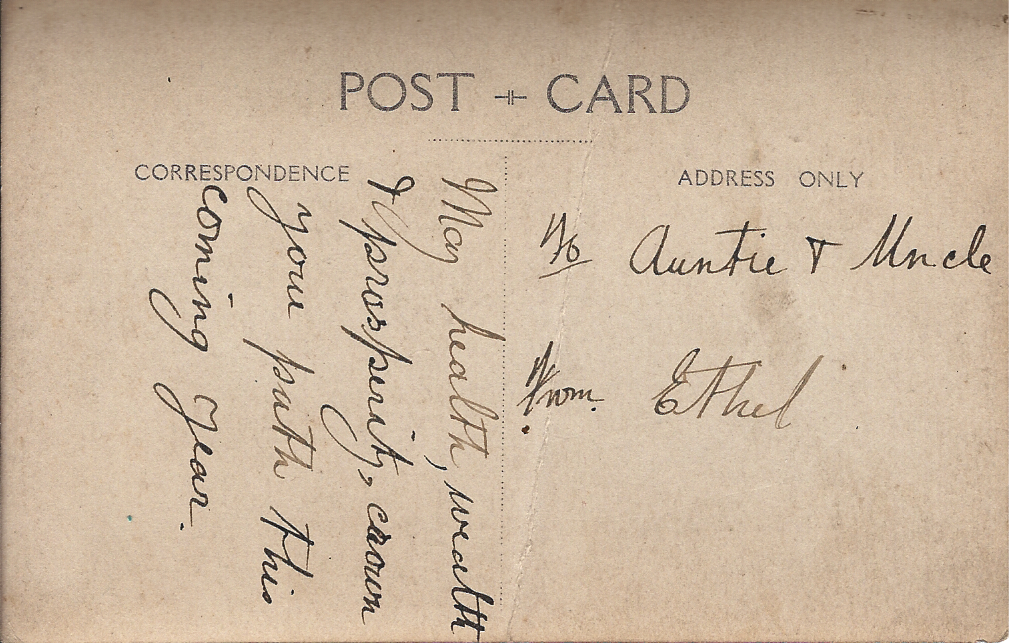 POST CARD
CORRESPONDENCE
May health, wealth
& prosperity, crown
your path this
coming year.
ADDRESS ONLY
To Auntie & Uncle
From. Ethel